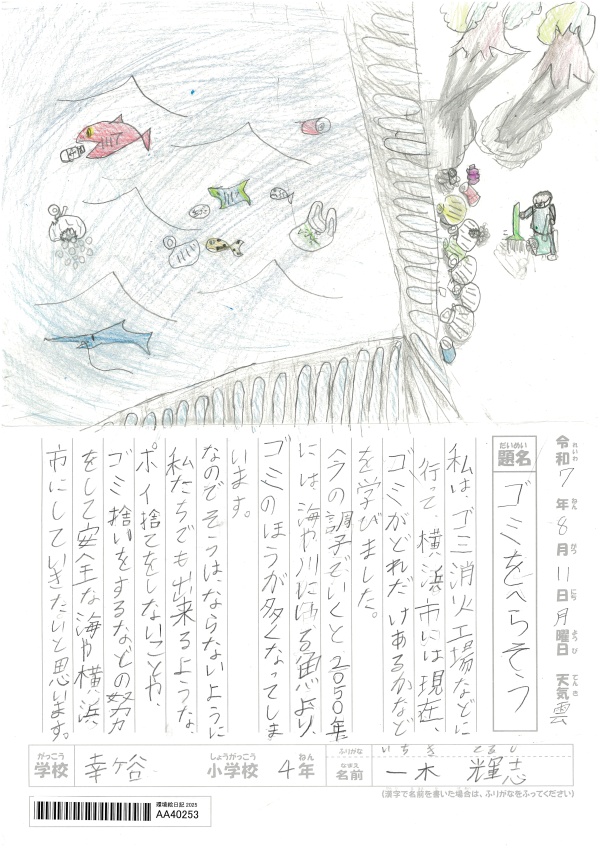 令和7年8月11日月曜日 天気 雲
れいわ ねん がつ にち ようび てんき
だいめい
題名 ゴミをへらそう
私は、ゴミ消火工場などに
行って、横浜市には現在、
ゴミがどれだけあるかなど
を学びました。
今の調子でいくと2050年
には海や川にいる魚より、
ゴミのほうが多くなってしま
います。
なのでそうはならないように
私たちでも出来るような、
ポイ捨てをしないことや、
ゴミ捨いをするなどの努力
をして安全な海や横浜
市にしていきたいと思います。
がっこう しょうがっこう ねん ふりがな いちき てるし
学校 幸ケ谷 小学校 4年 なまえ 名前 一木 輝志
(漢字で名前を書いた場合は、ふりがなをふってください)
環境絵日記 2025
AA40253